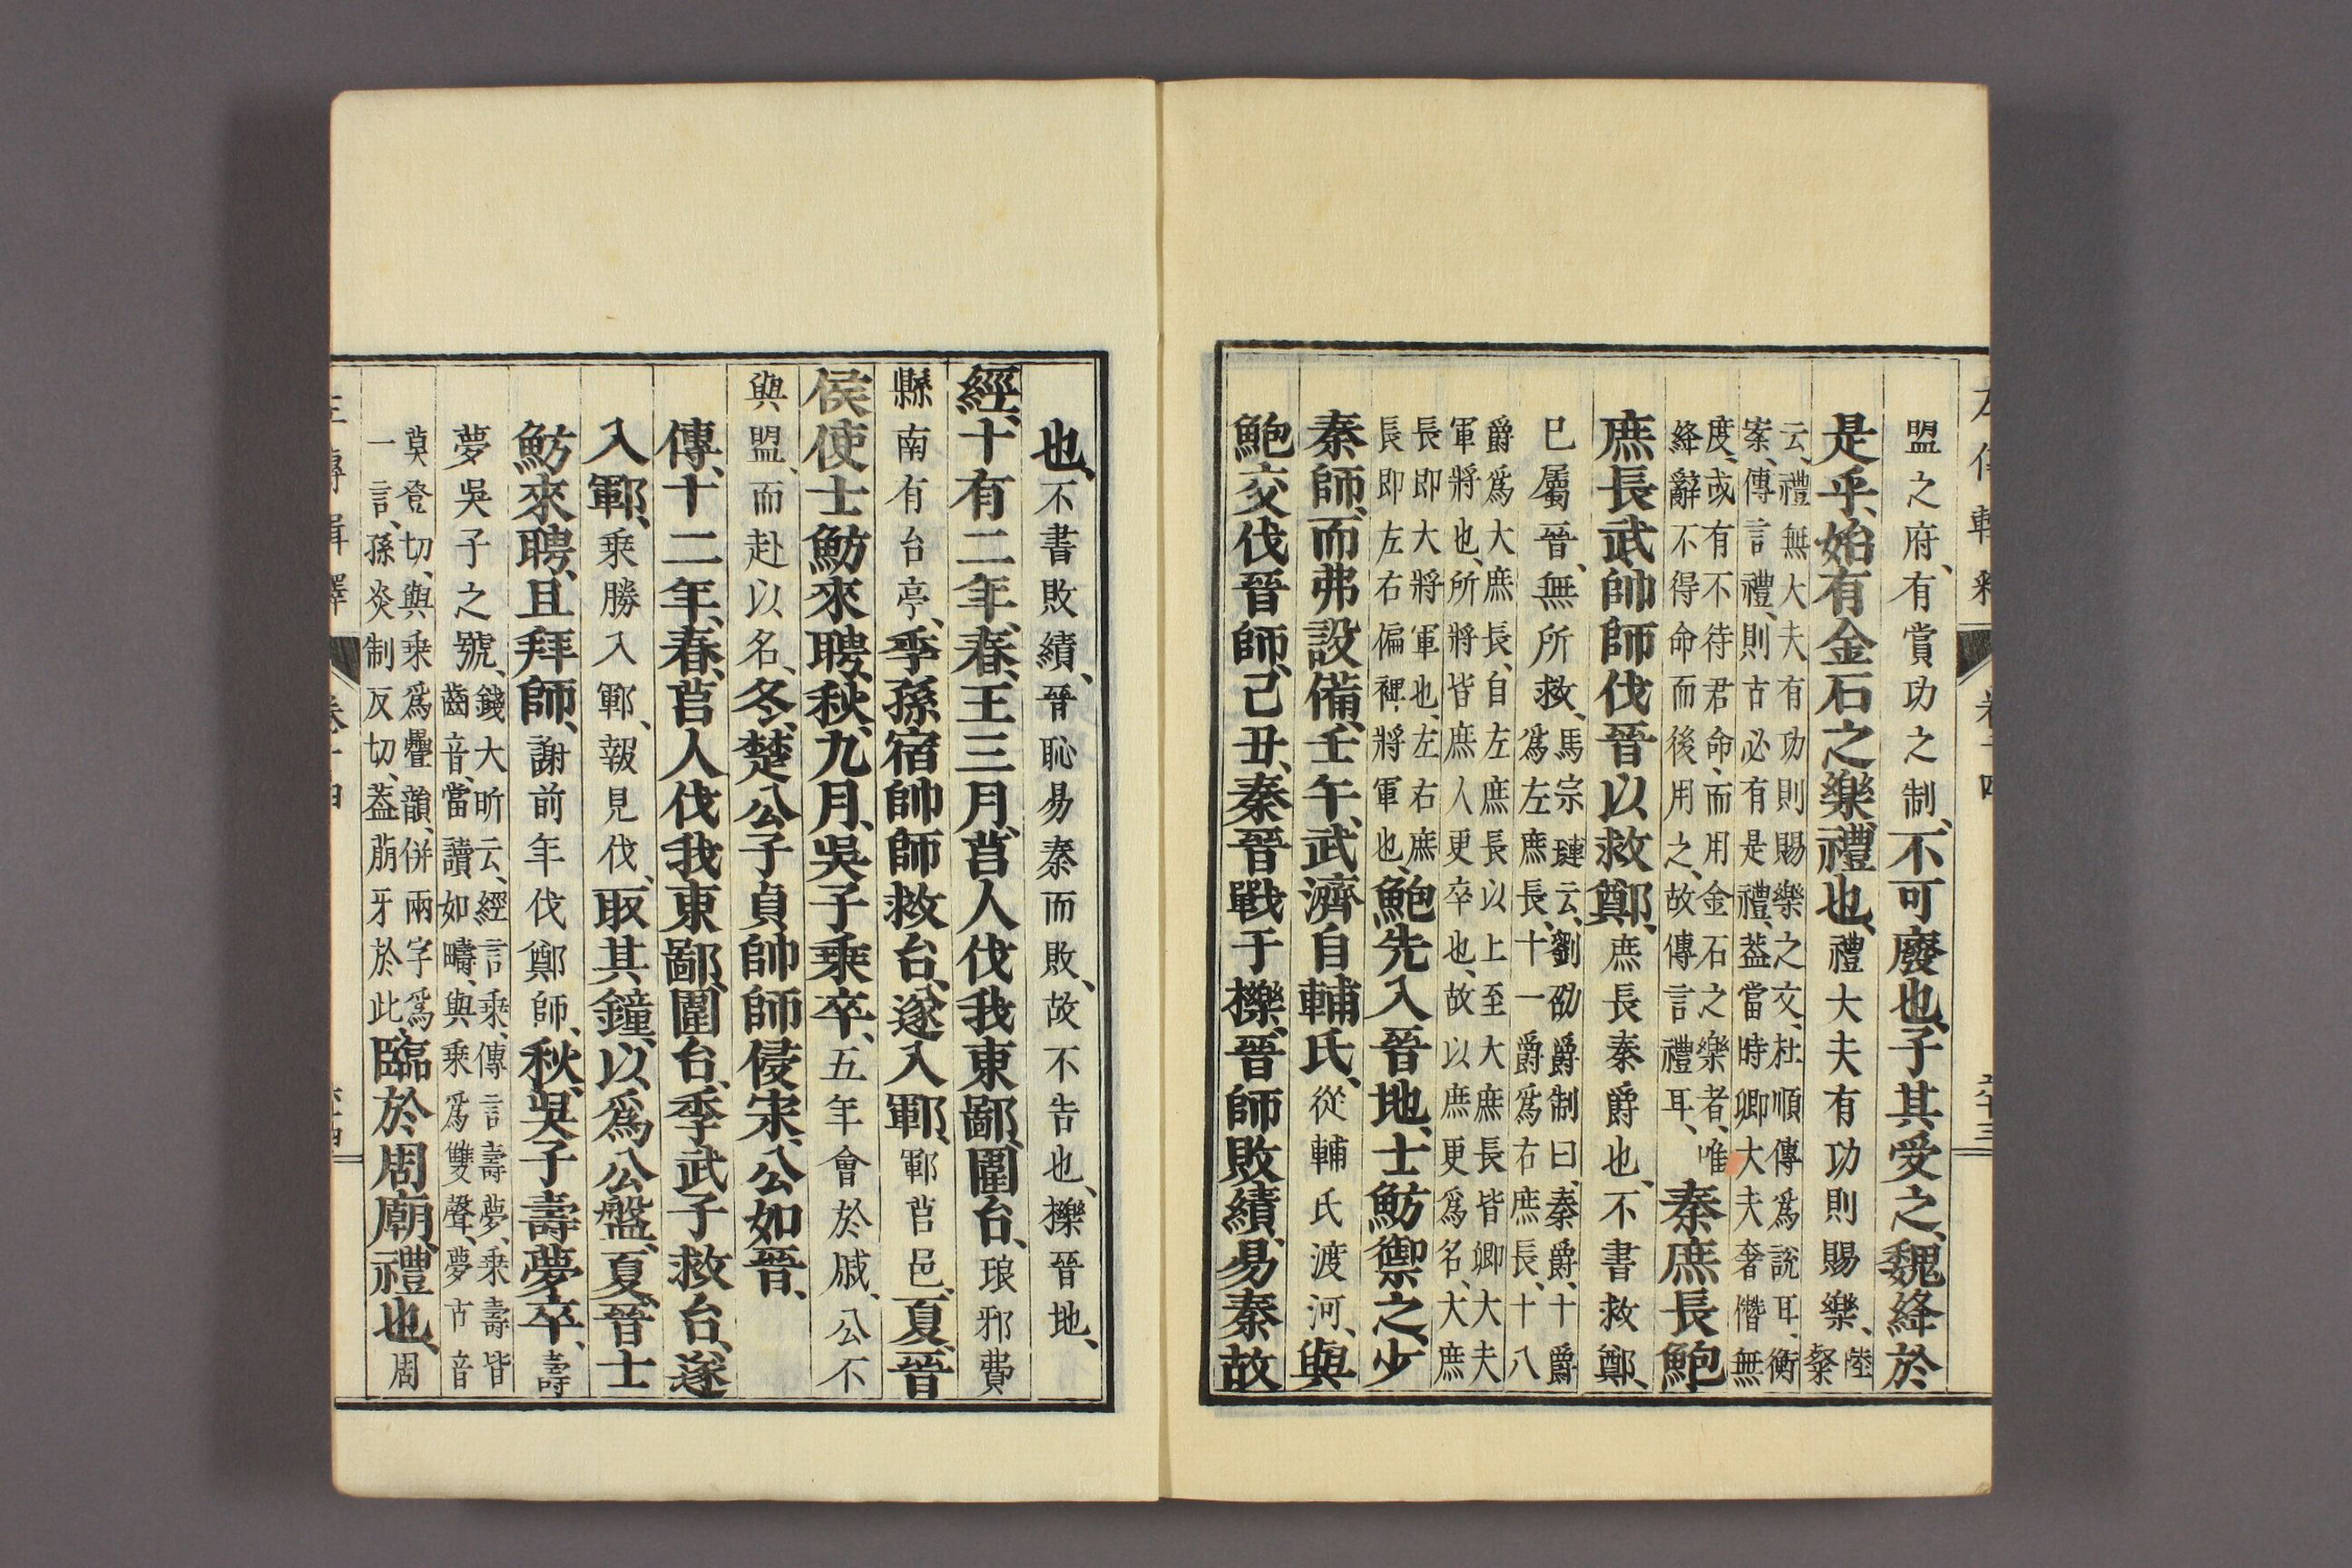 盟之府、有賞功之制、不可廢也、子其受之、魏絳於
是乎、始有金石之樂、禮也、禮大夫有功則賜樂、陸粲
云、禮無大夫有功則賜樂之交、杜順傳爲說耳、衡
案、傳言禮、則古必有是禮、葢當時卿大夫奢僭無
度、或有不待君命、而用金石之樂者、唯
絳辭不得命而後用之、故傳言禮耳、秦庶長鮑
庶長武、帥師伐晉以救鄭、庶長秦爵也、不書救鄭、
已屬晉、無所救、馬宗璉云、劉劭爵制曰、秦爵、十爵
爲左庶長、十一爵爲右庶長、十八
爵爲大庶長、自左庶長以上至大庶長皆卿大夫
軍將也、所將皆庶人更卒也、故以庶更爲名、大庶
長即大將軍也、左右庶
長即左右偏裨將軍也、鮑先入晉地、士魴禦之、少
秦師、而弗設備、壬午、武濟自輔氏、從輔氏渡河、與
鮑交伐晉師、己丑、秦晉戰于櫟、晉師敗績、易秦故
也、不書敗績、晉恥易秦而敗、故不告也、櫟晉地、
經、十有二年、春、王三月、莒人伐我東鄙、圍台、琅邪費
縣南有台亭、季孫宿帥師救台、遂入鄆、鄆莒邑、夏、晉
侯使士魴來聘、秋、九月、吳子乘卒、五年會於戚、公不
與盟、而赴以名、冬、楚公子貞帥師侵宋、公如晉、
傳、十二年、春、莒人伐我東鄙、圍台、季武子救台、遂
入鄆、乘勝入鄆、報見伐、取其鐘、以爲公盤、夏、晉士
魴來聘、且拜師、謝前年伐鄭師、秋、吳子壽夢卒、壽
夢吳子之號、錢大昕云、經言乘、傳言壽夢、乘壽皆
齒音、當讀如疇、與乘爲雙聲、夢古音
莫登切、與乘爲疊韻、併兩字爲
一言、孫炎制反切、葢萌牙於此、臨於周廟、禮也、周